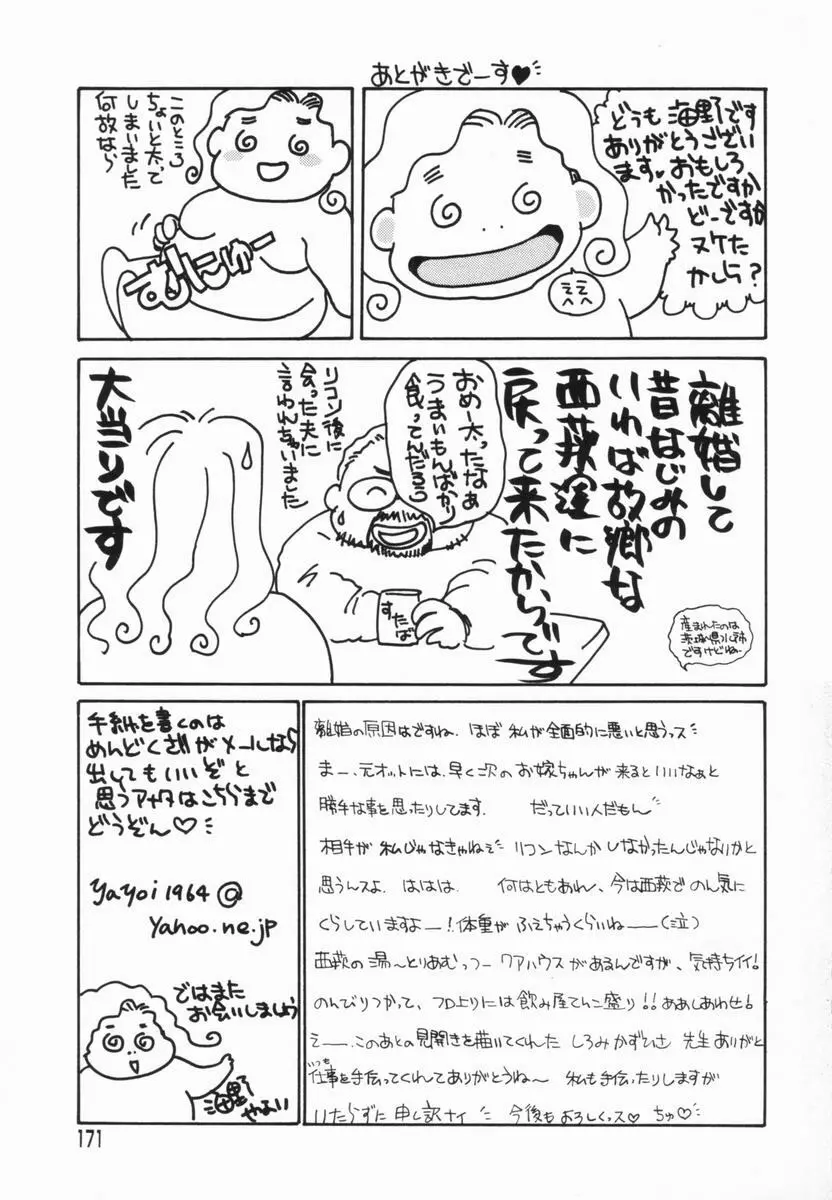 あとがきでーす♥
どうも海野です
ありがとうござい
ます♥おもしろ
かったですか
どーですか
ヌケた
かしら?
ええ
このところ
ちょいと太って
しまいました
何故なら
むにゅー
離婚して
昔なじみの
いわば故郷な
西荻窪に
戻って来たからです
産まれたのは
茨城県水戸市
ですけどね。
おめー太ったなぁ
うまいもんばかり
食ってんだろう
すたば
リコン後に
会った夫に
言われちゃいました
大当りです
離婚の原因はですね、ほぼ私が全面的に悪いと思うっス
まー、元オットには、早く次のお嫁ちゃんが来るといいなぁと
勝手な事を思ったりしてます。 だっていい人だもん
相手が私じゃなきゃねぇ リコンなんかしなかったんじゃないかと
思うんスよ、ははは。 何はともあれ、今は西荻でのん気に
くらしていますよー!体重がふえちゃうくらいね――(泣)
西荻の湯〜とりあむっつークアハウスがあるんですが、気持ちイイ!
のんびりつかって、フロ上りには飲み屋てんこ盛り!!ああしあわせ!
えー、このあとの見開きを描いてくれたしろみかずひさ先生ありがと
いつも
仕事を手伝ってくれてありがとうね〜 私も手伝ったりしますが
いたらずに申し訳ナイ 今後もよろしくっス♡ ちゅ♡
手紙を書くのは
めんどくさいがメールなら
出してもいいぞと
思うアナタはこちらまで
どうぞん♡
yayoi1964@
yahoo.ne.jp
ではまた
お会いしましょう
海野
やよい
171